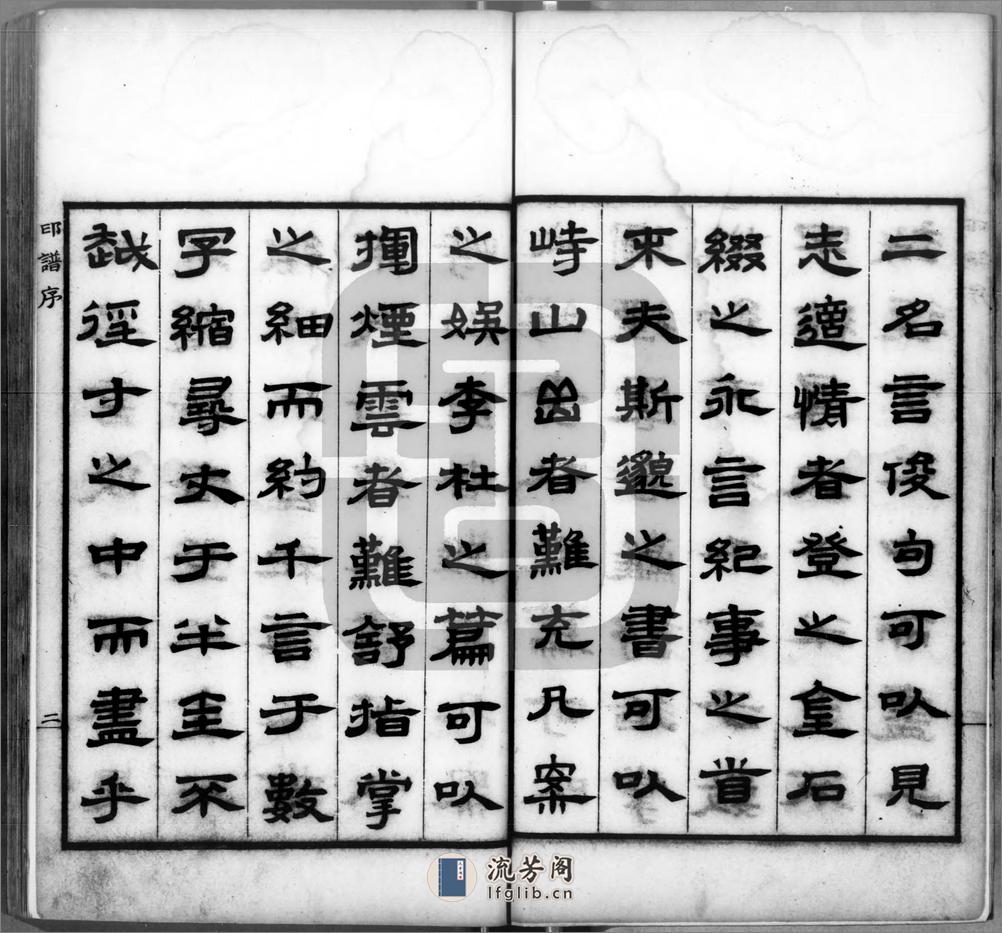 二名言俊句可㕥見
志適情者登之金石
綴之永言紀事之首
來夫斯邈之書可㕥
峙山者難充凡案
之娛李杜之篇可㕥
揮煙雲者難舒指掌
之細而約千言于數
字縮尋丈于半圭不
越徑寸之中而盡乎
印譜序
三
流芳阁
lfglib.cn